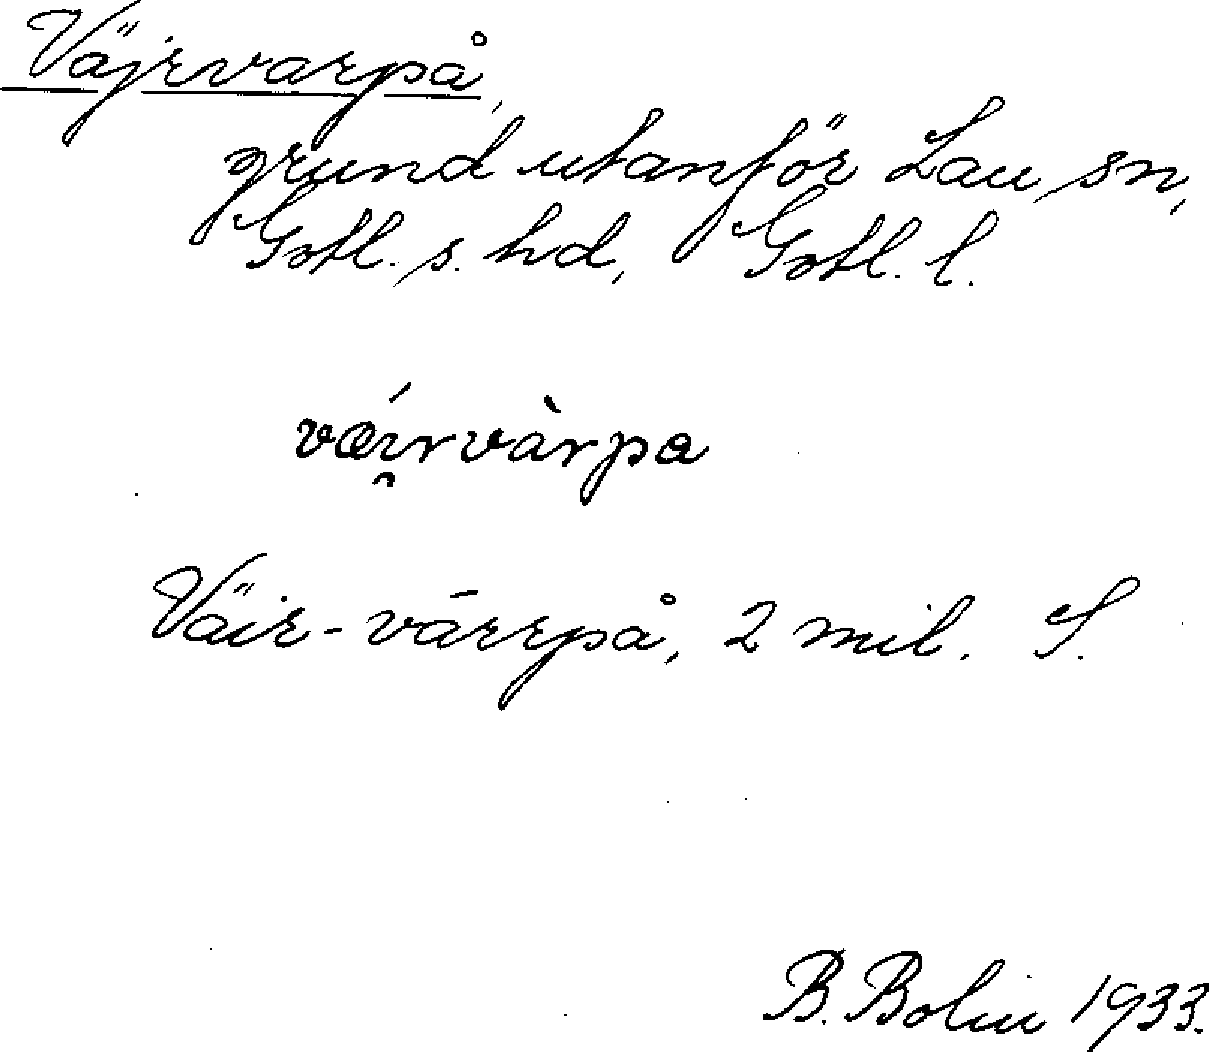 Väjrvarpå,
grund utanför Lau sn,
Gotl. s. hd, Gotl. l.
vǽi̯rvàrpa
Väir-vārrpå, 2 mil. S.
B. Bolin 1933.